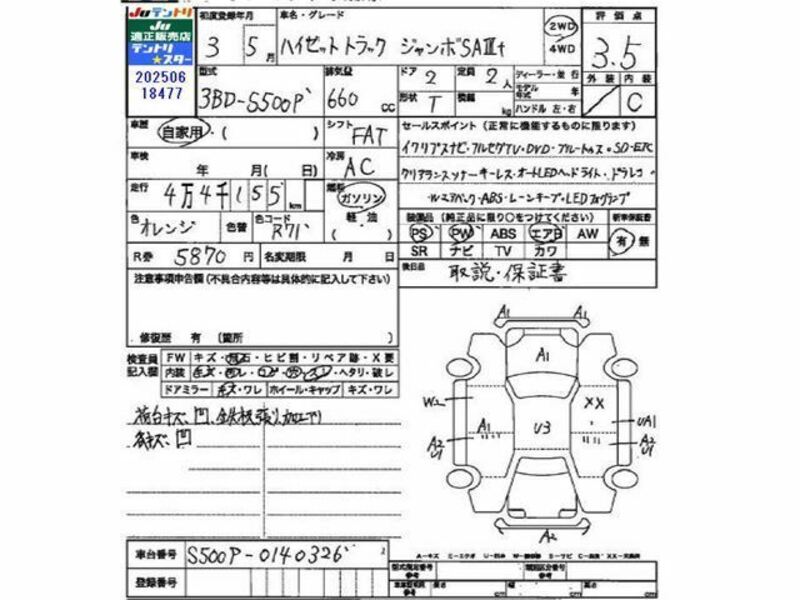 Juテントリ
Ju
適正販売店
テントリ
★スター
202506
18477
初度登録年月 3 5月
車名・グレード ハイゼットトラック ジャンボSAⅢt
2WD
4WD
評価点 3.5
外装 内装 C
型式 3BD-S500P
排気量 660 cc
ドア 2
定員 2人
形状 T
積載 kg
ディーラー・並行
モデル年式 年
ハンドル 左・右
車歴 自家用・( )
シフト FAT
車検 年 月( 日)
冷房 AC
セールスポイント(正常に機能するものに限ります)
イクリプスナビ・フルセグTV・DVD・ブルートゥス・SD・ETC
クリアランスソナー キーレス・オートLEDヘッドライト・ドラレコ
WエアバックABS・レーンキープ・LEDフォグランプ
走行 4万4千155km
燃料 ガソリン
軽・油
( )
色 オレンジ
色替
色コード R71
装備品(純正品に限り○をつけてください)
新車保証書 有・無
PS PW ABS エアB AW
SR ナビ TV カワ
R券 5870円
名変期限 月 日
後日品 取説・保証書
注意事項申告欄(不具合内容等は具体的に記入して下さい)
修復歴 有 (箇所 )
検査員記入欄
FW キズ・飛石・ヒビ割・リペア跡・X要
内装 キズ・汚レ・コゲ・穴・スレ・ヘタリ・破レ
ドアミラー キズ・ワレ ホイール・キャップ キズ・ワレ
荷台キズ、凹、鉄板張り加工アリ
各キズ、凹
A1 A1
A1
W2
XX
A1
U3
UA1
A2
U1
A2
U1
A2
A=キズ
車台番号 S500P-0140326
登録番号
型式指定番号 参考
類別区分番号 参考
長さ cm
幅 cm
高さ cm